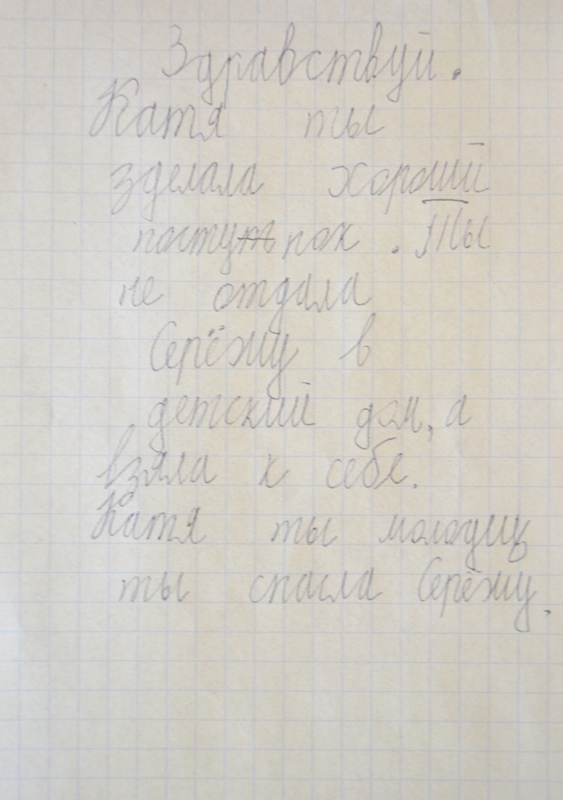 Здравствуй.
Катя ты
зделала хороший
поступок . Ты
не отдала
Серёжу в
детский дом, а
взяла к себе.
Катя ты молодиц
ты спасла Серёжу.